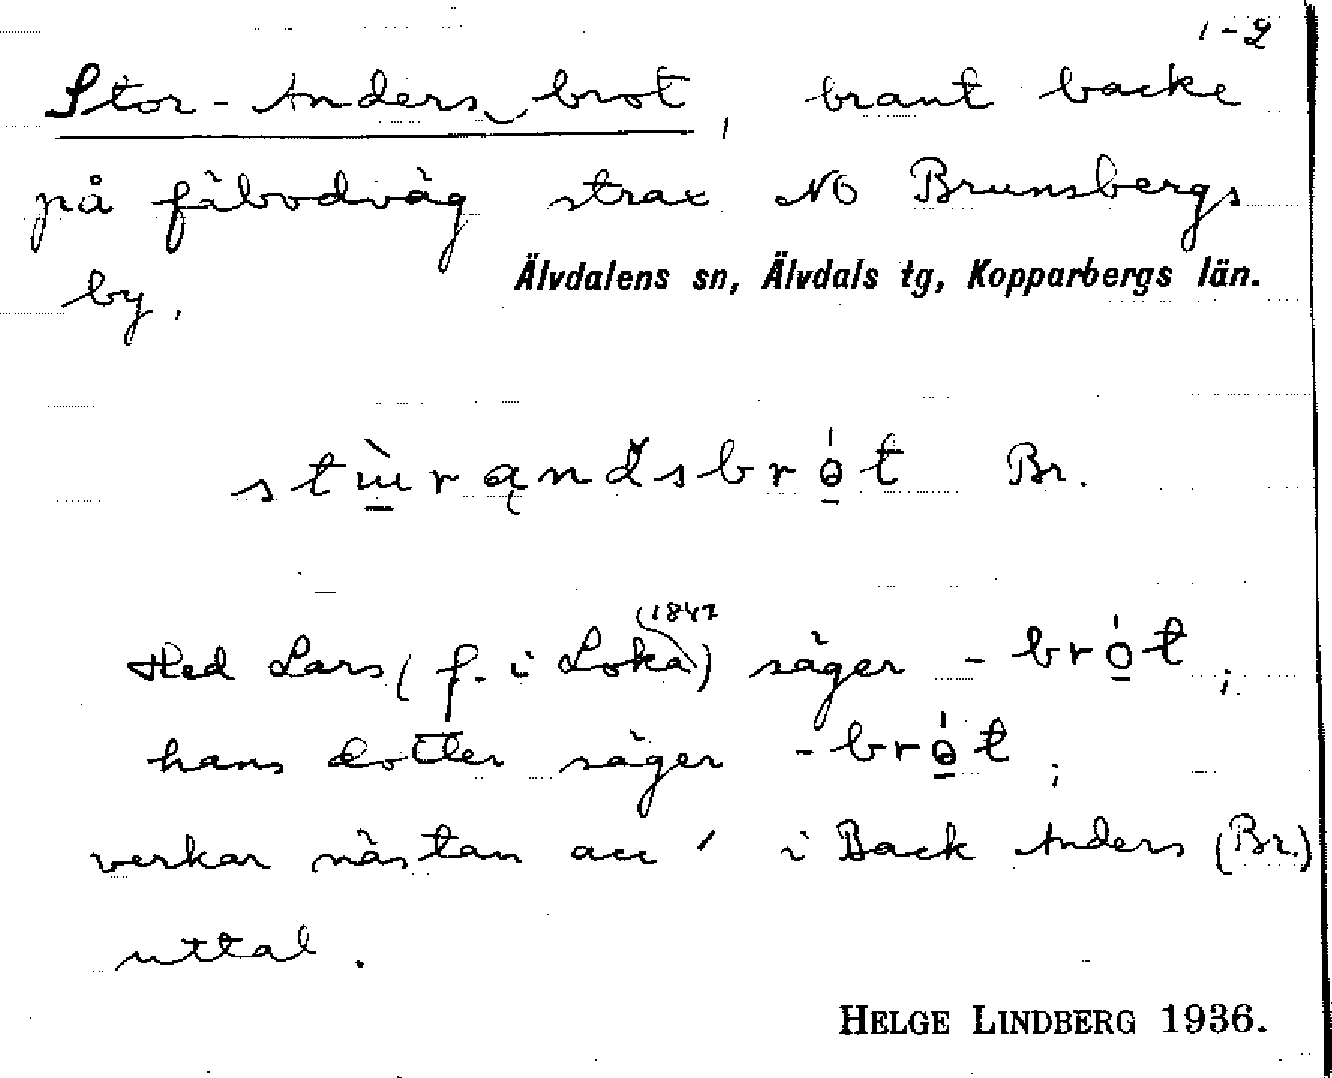 1-2
Stor-Anders brot, brant backe
på fäbodväg strax NO Brunsbergs
by.
Älvdalens sn, Älvdals tg, Kopparbergs län.
Br.
Hed Lars (f. i Loka) säger - brot;
hans dotter säger -brot;
verkar nästan acc ' i Back Anders (Br.)
uttal.
HELGE LINDBERG 1936.